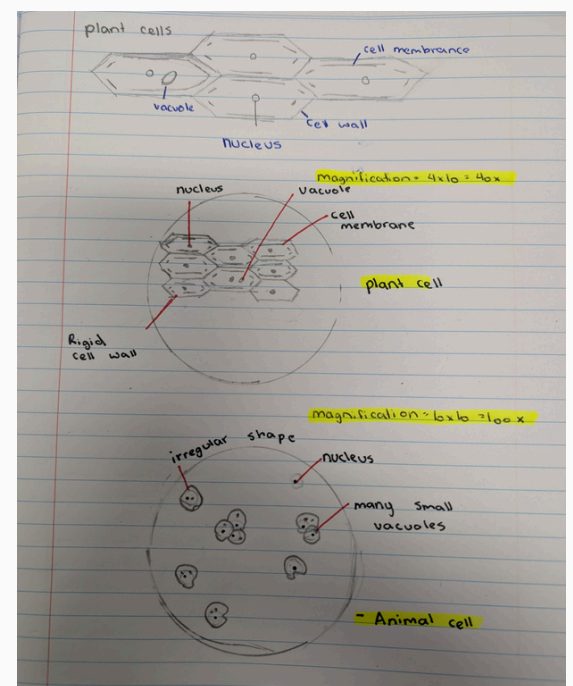 plant cells
cell membrance
vacuole
cell wall
nucleus
magnification = 4x10 = 40x
nucleus
vacuole
cell
membrane
plant cell
Rigid
cell wall
magnification = 10x10 = 100x
irregular shape
nucleus
many small
vacuoles
- Animal cell